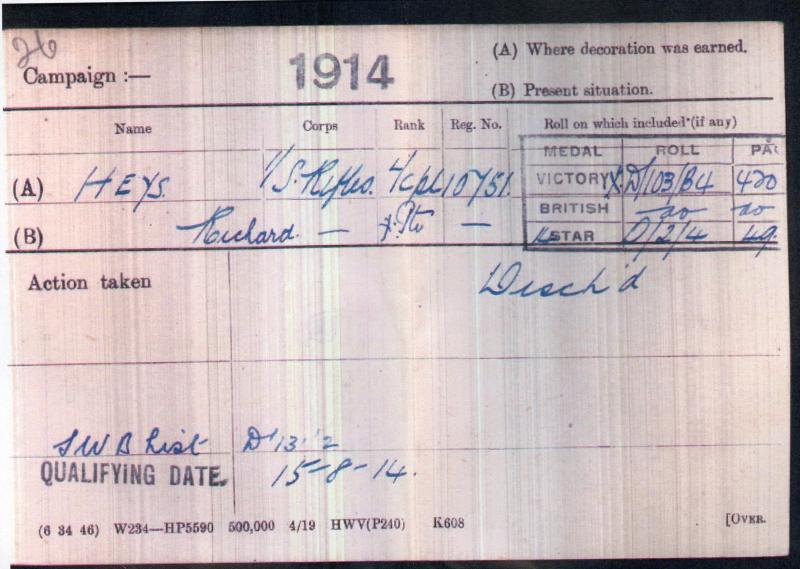 26
(A) Where decoration was earned.
Campaign :— 1914
(B) Present situation.
Name Corps Rank Reg. No. Roll on which included (if any)
MEDAL ROLL PA
(A) HEYS. 1/S. Rifles. L/Cpl 10751.
VICTORY X D/103/B4 420
BRITISH do do
(B) Richard. — x. Pte —
STAR D/2/4 49
Action taken
Disch'd
SWB List D'13''2
QUALIFYING DATE. 15-8-14.
(6 34 46) W234—HP5590 500,000 4/19 HWV(P240) K608 [OVER.